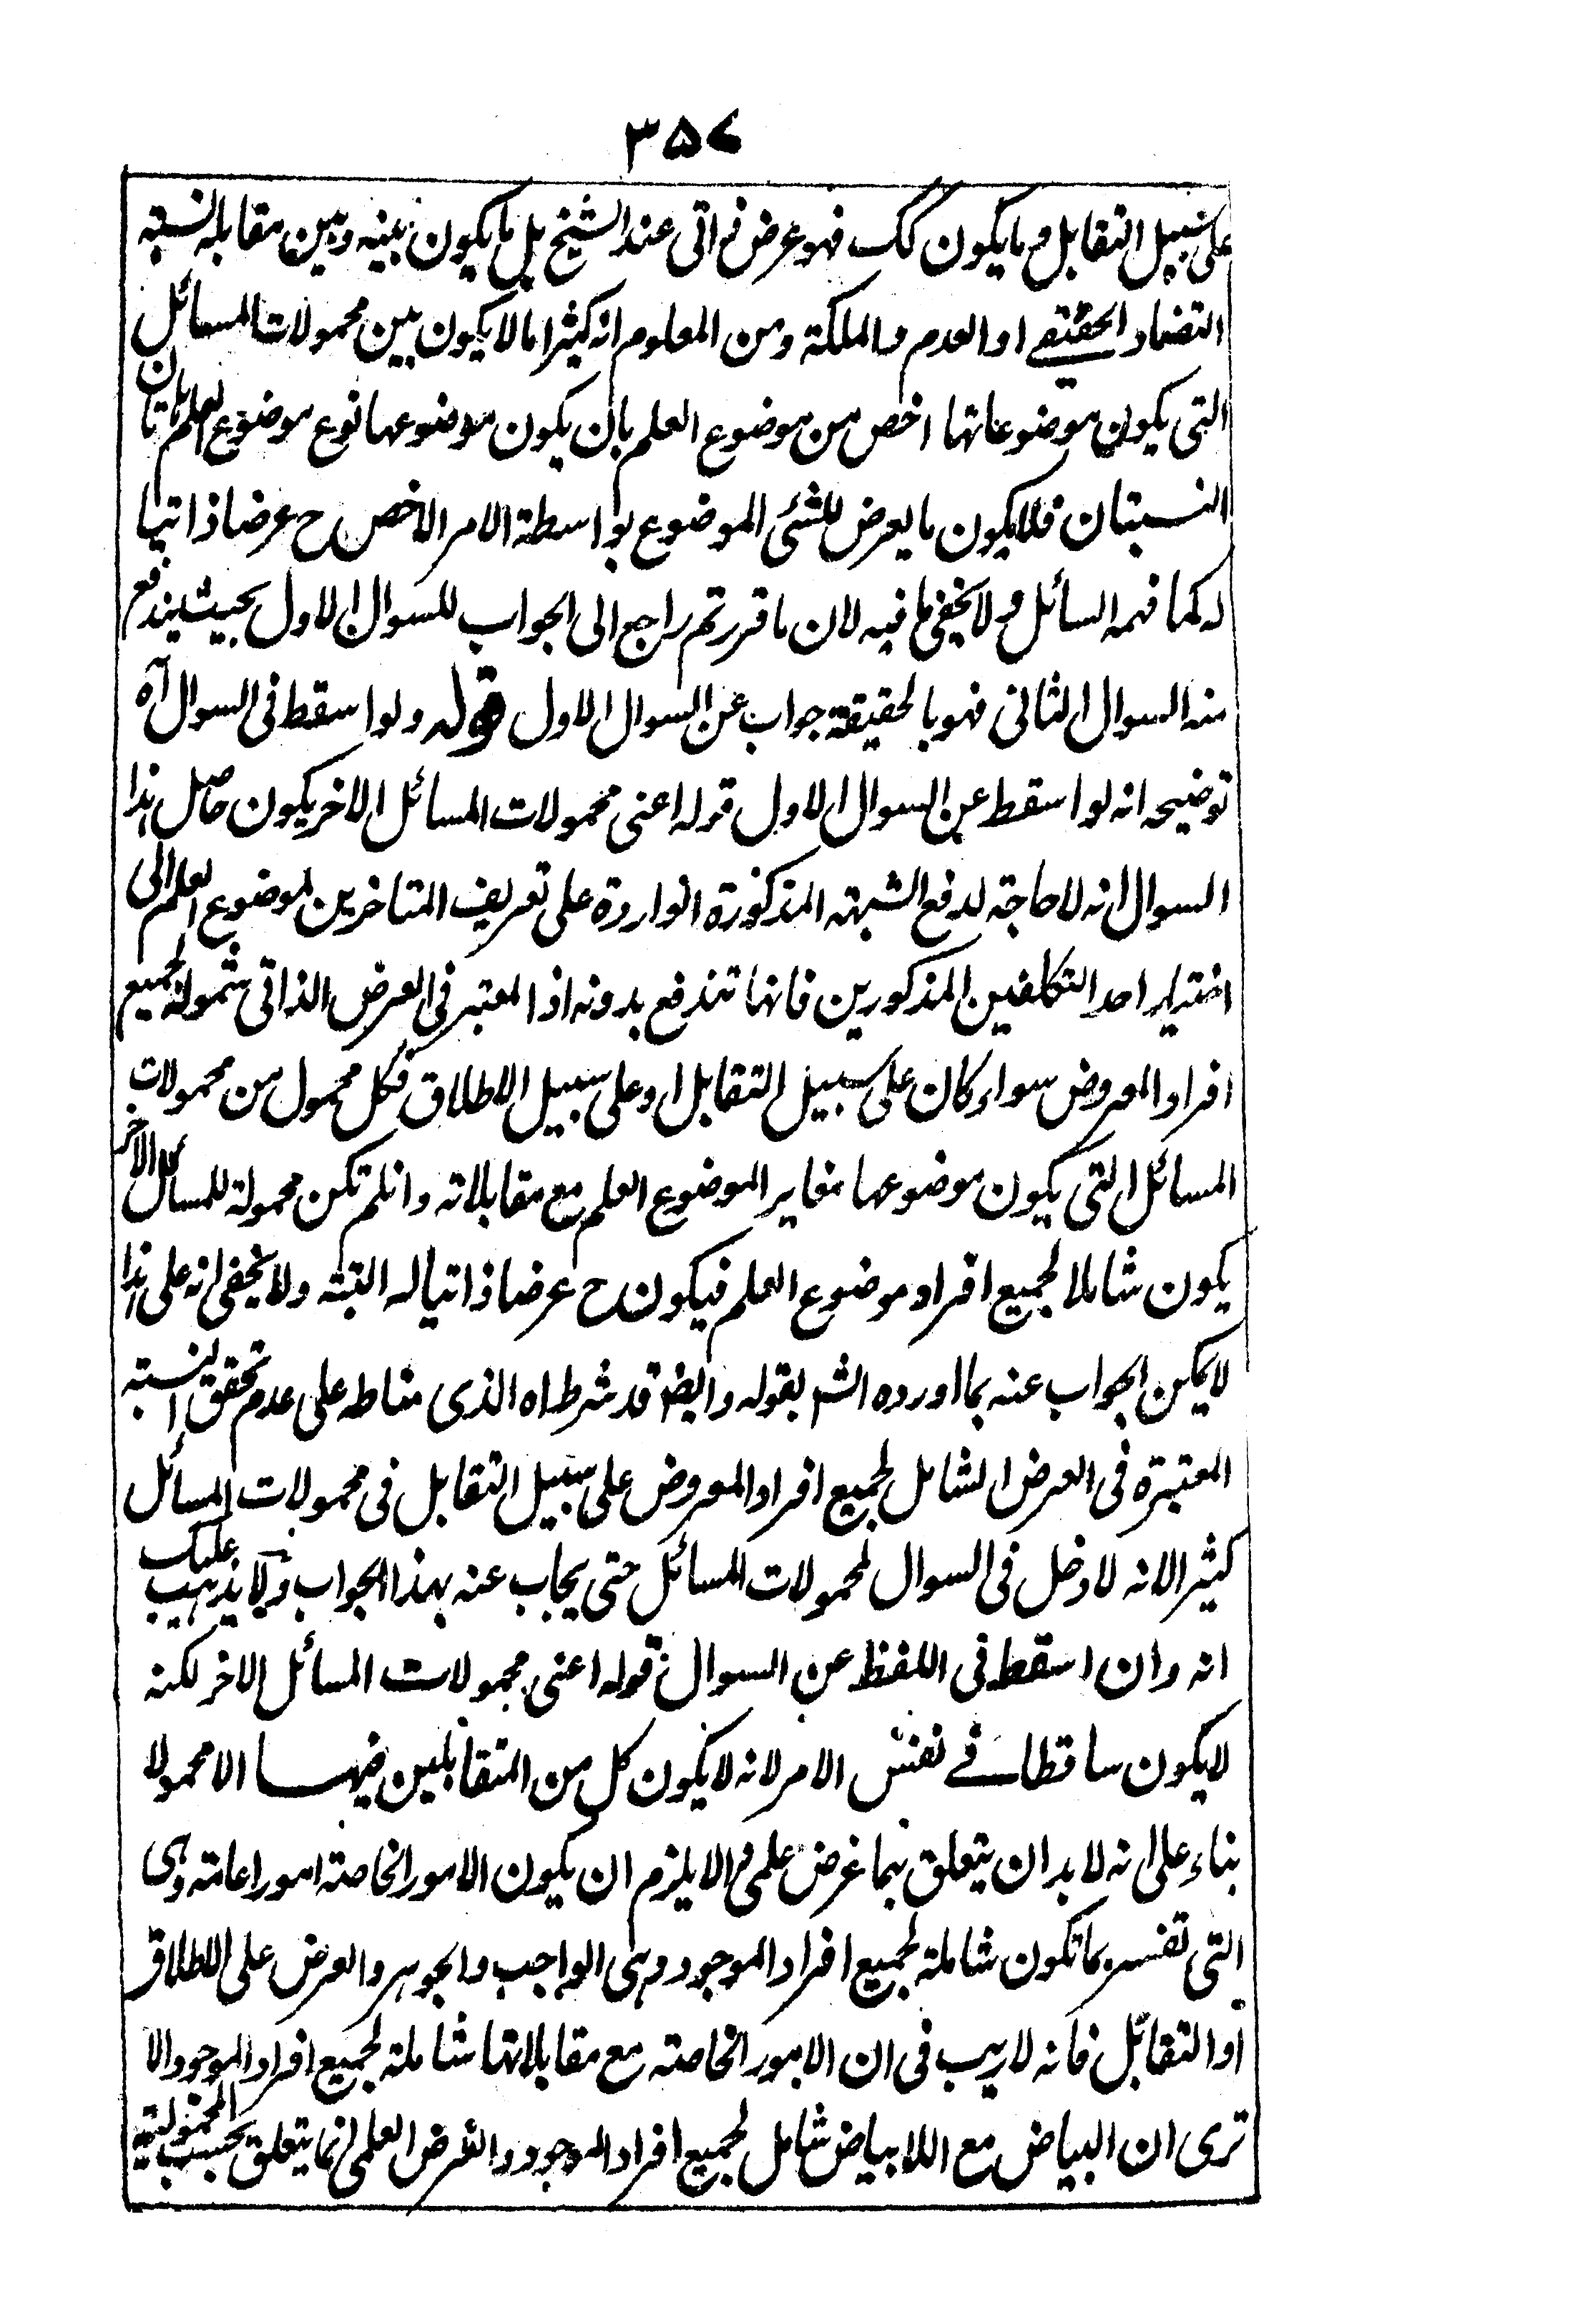 ٣٥٧
على سبيل التقابل وما يكون كك فهو عرض ذاتى عند الشيخ بل ما يكون بينه وبين مقابله نسبة
التضاد الحقيقے او العدم والملكة ومن المعلوم انه كثيرا ما لا يكون بين محمولات المسائل
التى يكون موضوعاتها اخص من موضوع العلم بان يكون موضوعها نوع موضوع العلم تانك
النسبتان فلا يكون ما يعرض للشئ الموضوع بواسطة الامر الاخص ح عرضا ذاتيا
له كما فهمه السائل ولا يخفى ما فيه لان ما قررتم راجع الى الجواب للسوال الاول بحيث يندفع
منه السوال الثانى فهو بالحقيقة جواب عن السوال الاول قوله ولو اسقط فى السوال آه
توضيحه انه لو اسقط عن السوال الاول قوله اعنى محمولات المسائل الاخر يكون حاصل هذا
السوال انه لا حاجة لدفع الشبهة المذكورة الواردة على تعريف المتاخرين لموضوع العلم الى
اختيار احد التكلفين المذكورين فانها تندفع بدونه اذ المعتبر فى العرض الذاتى شموله لجميع
افراد المعروض سواء كان على سبيل التقابل او على سبيل الاطلاق فكل محمول من محمولات
المسائل التى يكون موضوعها مغاير الموضوع العلم مع مقابلاته وانلم تكن محمولة للمسائل الاخر
يكون شاملا لجميع افراد موضوع العلم فيكون ح عرضا ذاتيا له البتة ولا يخفى انه على هذا
لا يمكن الجواب عنه بما اورده الشم بقوله وايضا قد شرط اه الذى مناطه على عدم تحقق النسبة
المعتبرة فى العرض الشامل لجميع افراد المعروض على سبيل التقابل فى محمولات المسائل
كثيرا لانه لا دخل فى السوال لمحمولات المسائل حتى يجاب عنه بهذا الجواب ولا يذهب عليك
انه وان اسقط فى اللفظ عن السوال قوله اعنى محمولات المسائل الاخر لكنه
لا يكون ساقطا فے نفس الامر لانه لا يكون كل من المتقابلين فيهما الا محمولا
بناء على انه لا بد ان يتعلق بهما غرض علمى والا يلزم ان يكون الامور الخاصة امورا عامة وهى
التى تفسر بما تكون شاملة لجميع افراد الموجود وهى الواجب والجوهر والعرض على الاطلاق
او التقابل فانه لا ريب فى ان الامور الخاصة مع مقابلاتها شاملة لجميع افراد الموجود الا
ترى ان البياض مع اللابياض شامل لجميع افراد الموجود والغرض العلمى انما يتعلق بحسب المحمولية